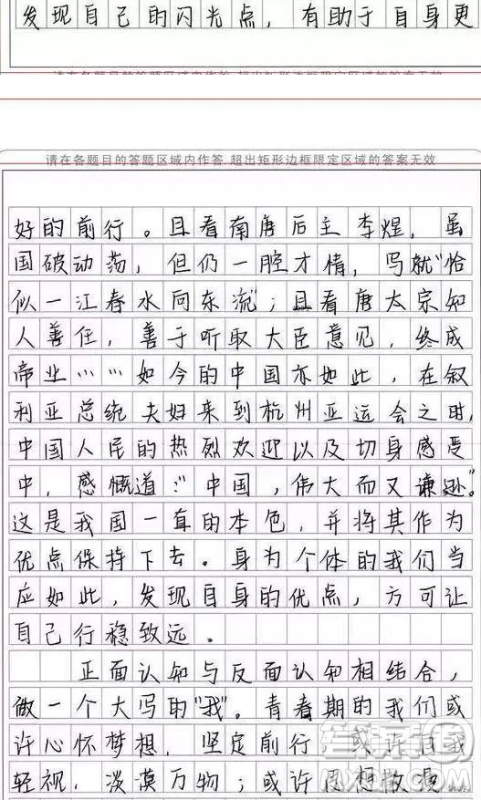 发现自己的闪光点，有助于自身更
请在各题目的答题区域内作答，超出矩形边框限定区域的答案无效
好的前行。且看南唐后主李煜，虽
国破动荡，但仍一腔才情，写就“恰
似一江春水向东流”；且看唐太宗知
人善任，善于听取大臣意见，终成
帝业……如今的中国亦如此，在叙
利亚总统夫妇来到杭州亚运会之时，
中国人民的热烈欢迎以及切身感受
中，感慨道：“中国，伟大而又谦逊。”
这是我国一直的本色，并将其作为
优点保持下去。身为个体的我们当
应如此，发现自身的优点，方可让
自己行稳致远。
正面认知与反面认知相结合，
做一个大写的“我”。青春期的我们或
许心怀梦想，坚定前行，或许自我
轻视，淡漠万物；或许思想